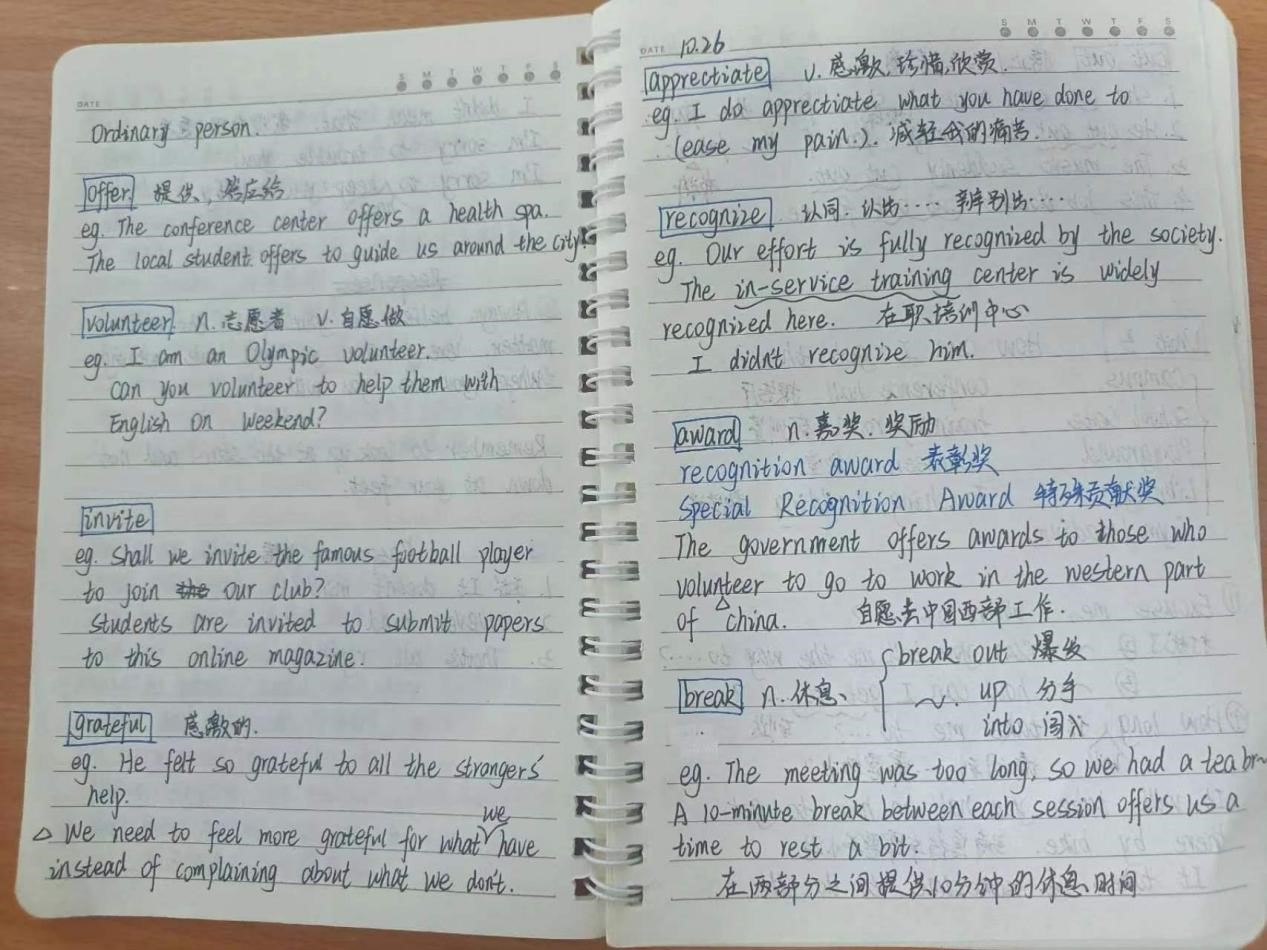 DATE
S M T W T F S
Ordinary person.
offer 提供,供应给
eg. The conference center offers a health spa.
The local student offers to guide us around the city.
volunteer n.志愿者 v.自愿做
eg. I am an Olympic volunteer.
Can you volunteer to help them with
English on weekend?
invite
eg. Shall we invite the famous football player
to join our club?
students are invited to submit papers
to this online magazine.
grateful 感激的.
eg. He felt so grateful to all the strangers'
help.
△ We need to feel more grateful for what we have
instead of complaining about what we don't.
S M T W T F S
DATE 10.26
apprectiate v.感激,珍惜,欣赏.
eg. I do apprectiate what you have done to
(ease my pain.). 减轻我的痛苦.
recognize 认同.认出…. 辨别出….
eg. Our effort is fully recognized by the society.
The in-service training center is widely
recognized here. 在职培训中心
I didn't recognize him.
award n.嘉奖.奖励
recognition award 表彰奖
Special Recognition Award 特殊贡献奖
The government offers awards to those who
volunteer to go to work in the western part
of China. 自愿去中国西部工作.
break out 爆发
break n.休息、 ~. up 分手
into 闯入
eg. The meeting was too long, so we had a tea br~
A 10-minute break between each session offers us a
time to rest a bit.
在两部分之间提供10分钟的休息时间